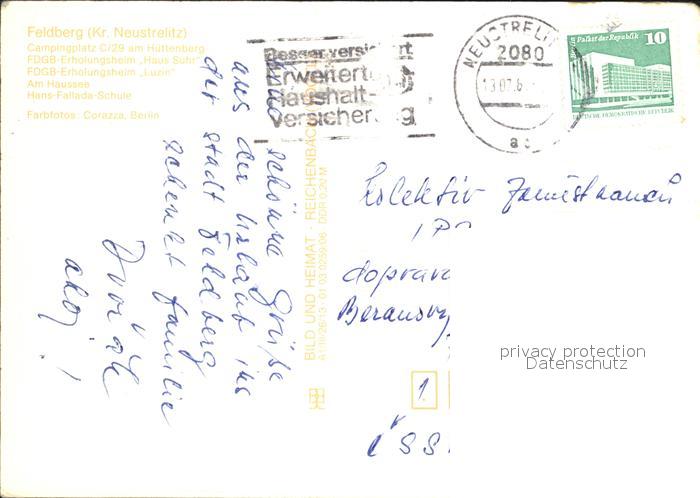 Feldberg (Kr. Neustrelitz)
Campingplatz C/29 am Hüttenberg
FDGB-Erholungsheim „Haus Suhr“
FDGB-Erholungsheim „Luzin“
Am Haussee
Hans-Fallada-Schule
Farbfotos: Corazza, Berlin
Besser versichert
Erweiterte
Haushalt-
Versicherung
NEUSTRELITZ
2080
Palast der Republik
10
DEUTSCHE DEMOKRATISCHE REPUBLIK
schöne Grüße
aus der Urlaub in
der Stadt Feldberg
schenkt Familie
Dvořák
ahoj!
BILD UND HEIMAT · REICHENBACH
A 1/III/26/13 01 03 0259/06 DDR 0,20 M
Kolektiv
doprava
1
ČSS
privacy protection
Datenschutz